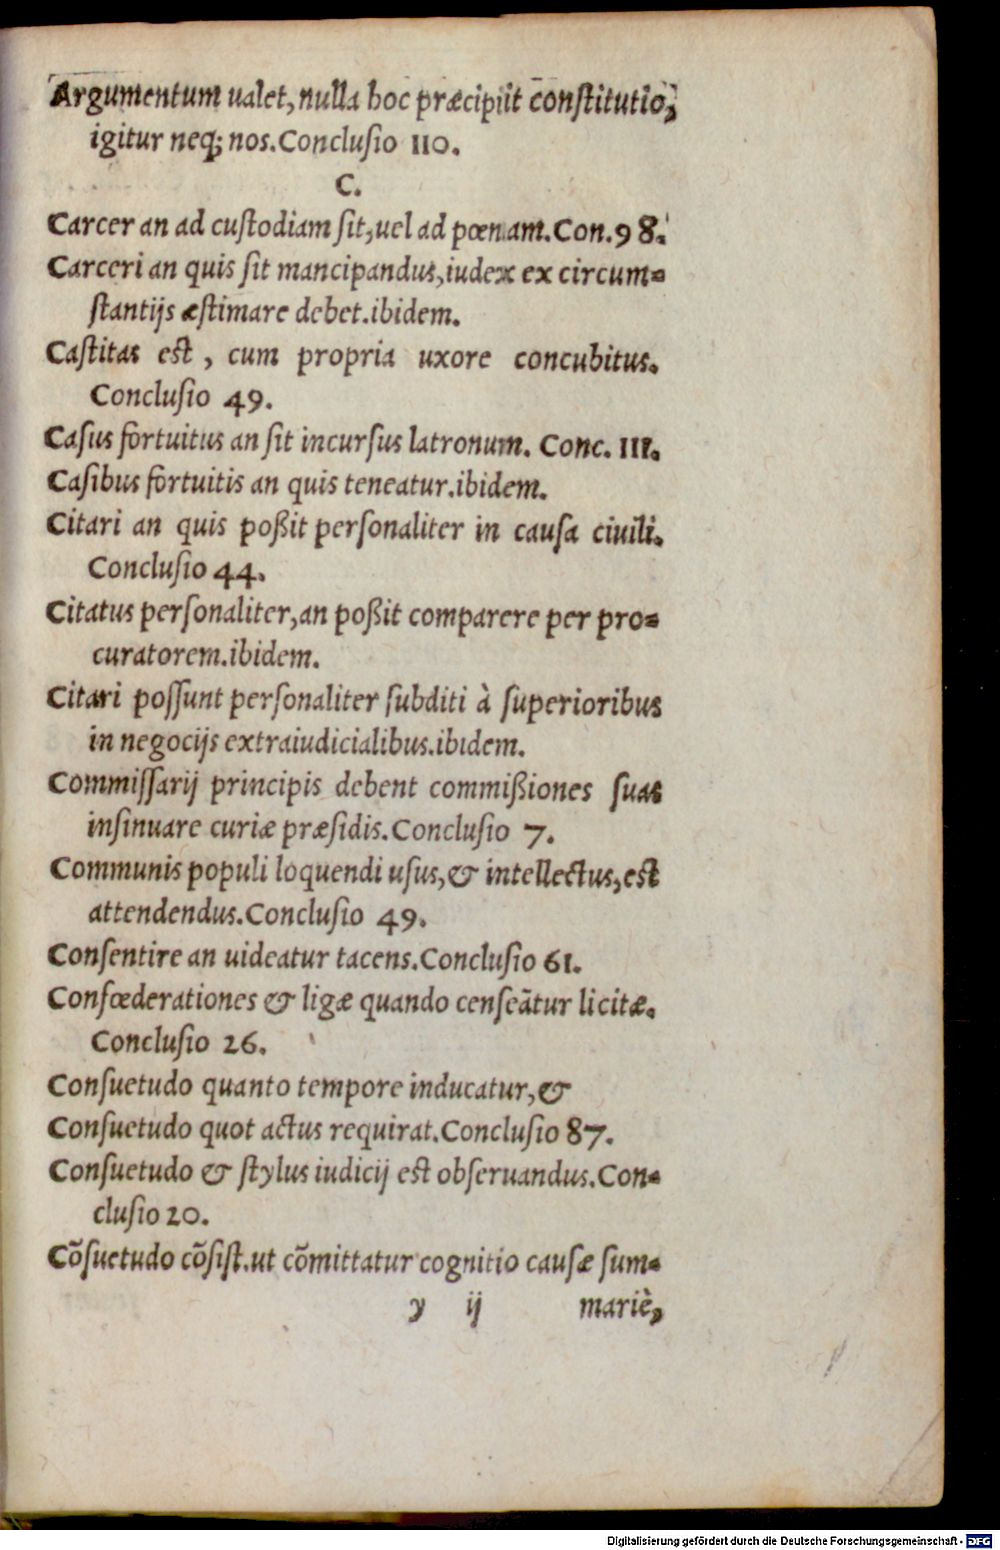 Argumentum ualet, nulla hoc præcipiit constitutio,
igitur neq; nos. Conclusio 110.
C.
Carcer an ad custodiam sit, uel ad pœnam. Con. 98.
Carceri an quis sit mancipandus, iudex ex circum-
stantijs æstimare debet. ibidem.
Castitas est, cum propria uxore concubitus.
Conclusio 49.
Casus fortuitus an sit incursus latronum. Conc. 111.
Casibus fortuitis an quis teneatur. ibidem.
Citari an quis poßit personaliter in causa ciuili.
Conclusio 44.
Citatus personaliter, an poßit comparere per pro-
curatorem. ibidem.
Citari possunt personaliter subditi à superioribus
in negocijs extraiudicialibus. ibidem.
Commissarij principis debent commißiones suas
insinuare curiæ præsidis. Conclusio 7.
Communis populi loquendi usus, & intellectus, est
attendendus. Conclusio 49.
Consentire an uideatur tacens. Conclusio 61.
Confœderationes & ligæ quando censeãtur licitæ.
Conclusio 26.
Consuetudo quanto tempore inducatur, &
Consuetudo quot actus requirat. Conclusio 87.
Consuetudo & stylus iudicij est obseruandus. Con-
clusio 20.
Cõsuetudo cõsist. ut cõmittatur cognitio causæ sum-
y ij mariè,
Digitalisierung gefördert durch die Deutsche Forschungsgemeinschaft - DFG